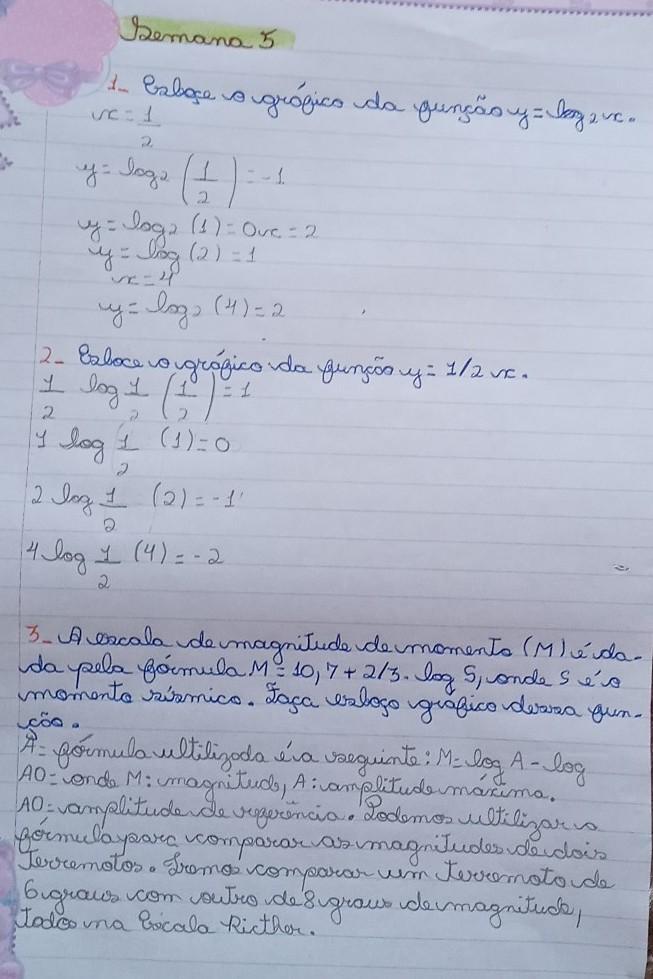 Semana 5
1- Esboçe o gráfico da função y = log₂ x.
x = 1/2
y = log₂ (1/2) = -1
y = log₂ (1) = 0 x = 2
y = log (2) = 1
x = 4
y = log₂ (4) = 2
2- Esboce o gráfico da função y = 1/2 x.
1/2 log 1/2 (1/2) = 1
1 log 1/2 (1) = 0
2 log 1/2 (2) = -1
4 log 1/2 (4) = -2
3- A escala de magnitude de momento (M) é da-
da pela fórmula M = 10,7 + 2/3. log S, onde S é o
momento sísmico. Faça esboço gráfico dessa fun-
ção.
A = fórmula ultilizada é a seguinte: M = log A - log
A0 = onde M: magnitude, A: amplitude máxima.
A0 = amplitude de referência. Podemos ultilizar a
fórmula para comparar as magnitudes de dois
terremotos. Iremos comparar um terremoto de
6 graus com outro de 8 graus de magnitude,
todos na Escala Ricther.